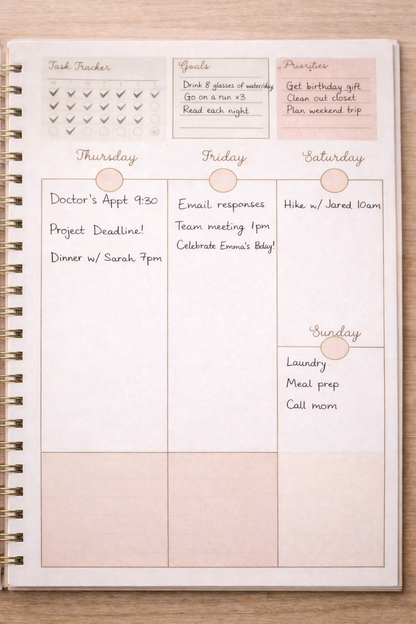 Task Tracker
Goals
Drink 8 glasses of water/day
Go on a run x3
Read each night
Priorities
Get birthday gift
Clean out closet
Plan weekend trip
Thursday
Doctor's Appt 9:30
Project Deadline!
Dinner w/ Sarah 7pm
Friday
Email responses
Team meeting 1pm
Celebrate Emma's Bday!
Saturday
Hike w/ Jared 10am
Sunday
Laundry
Meal prep
Call mom